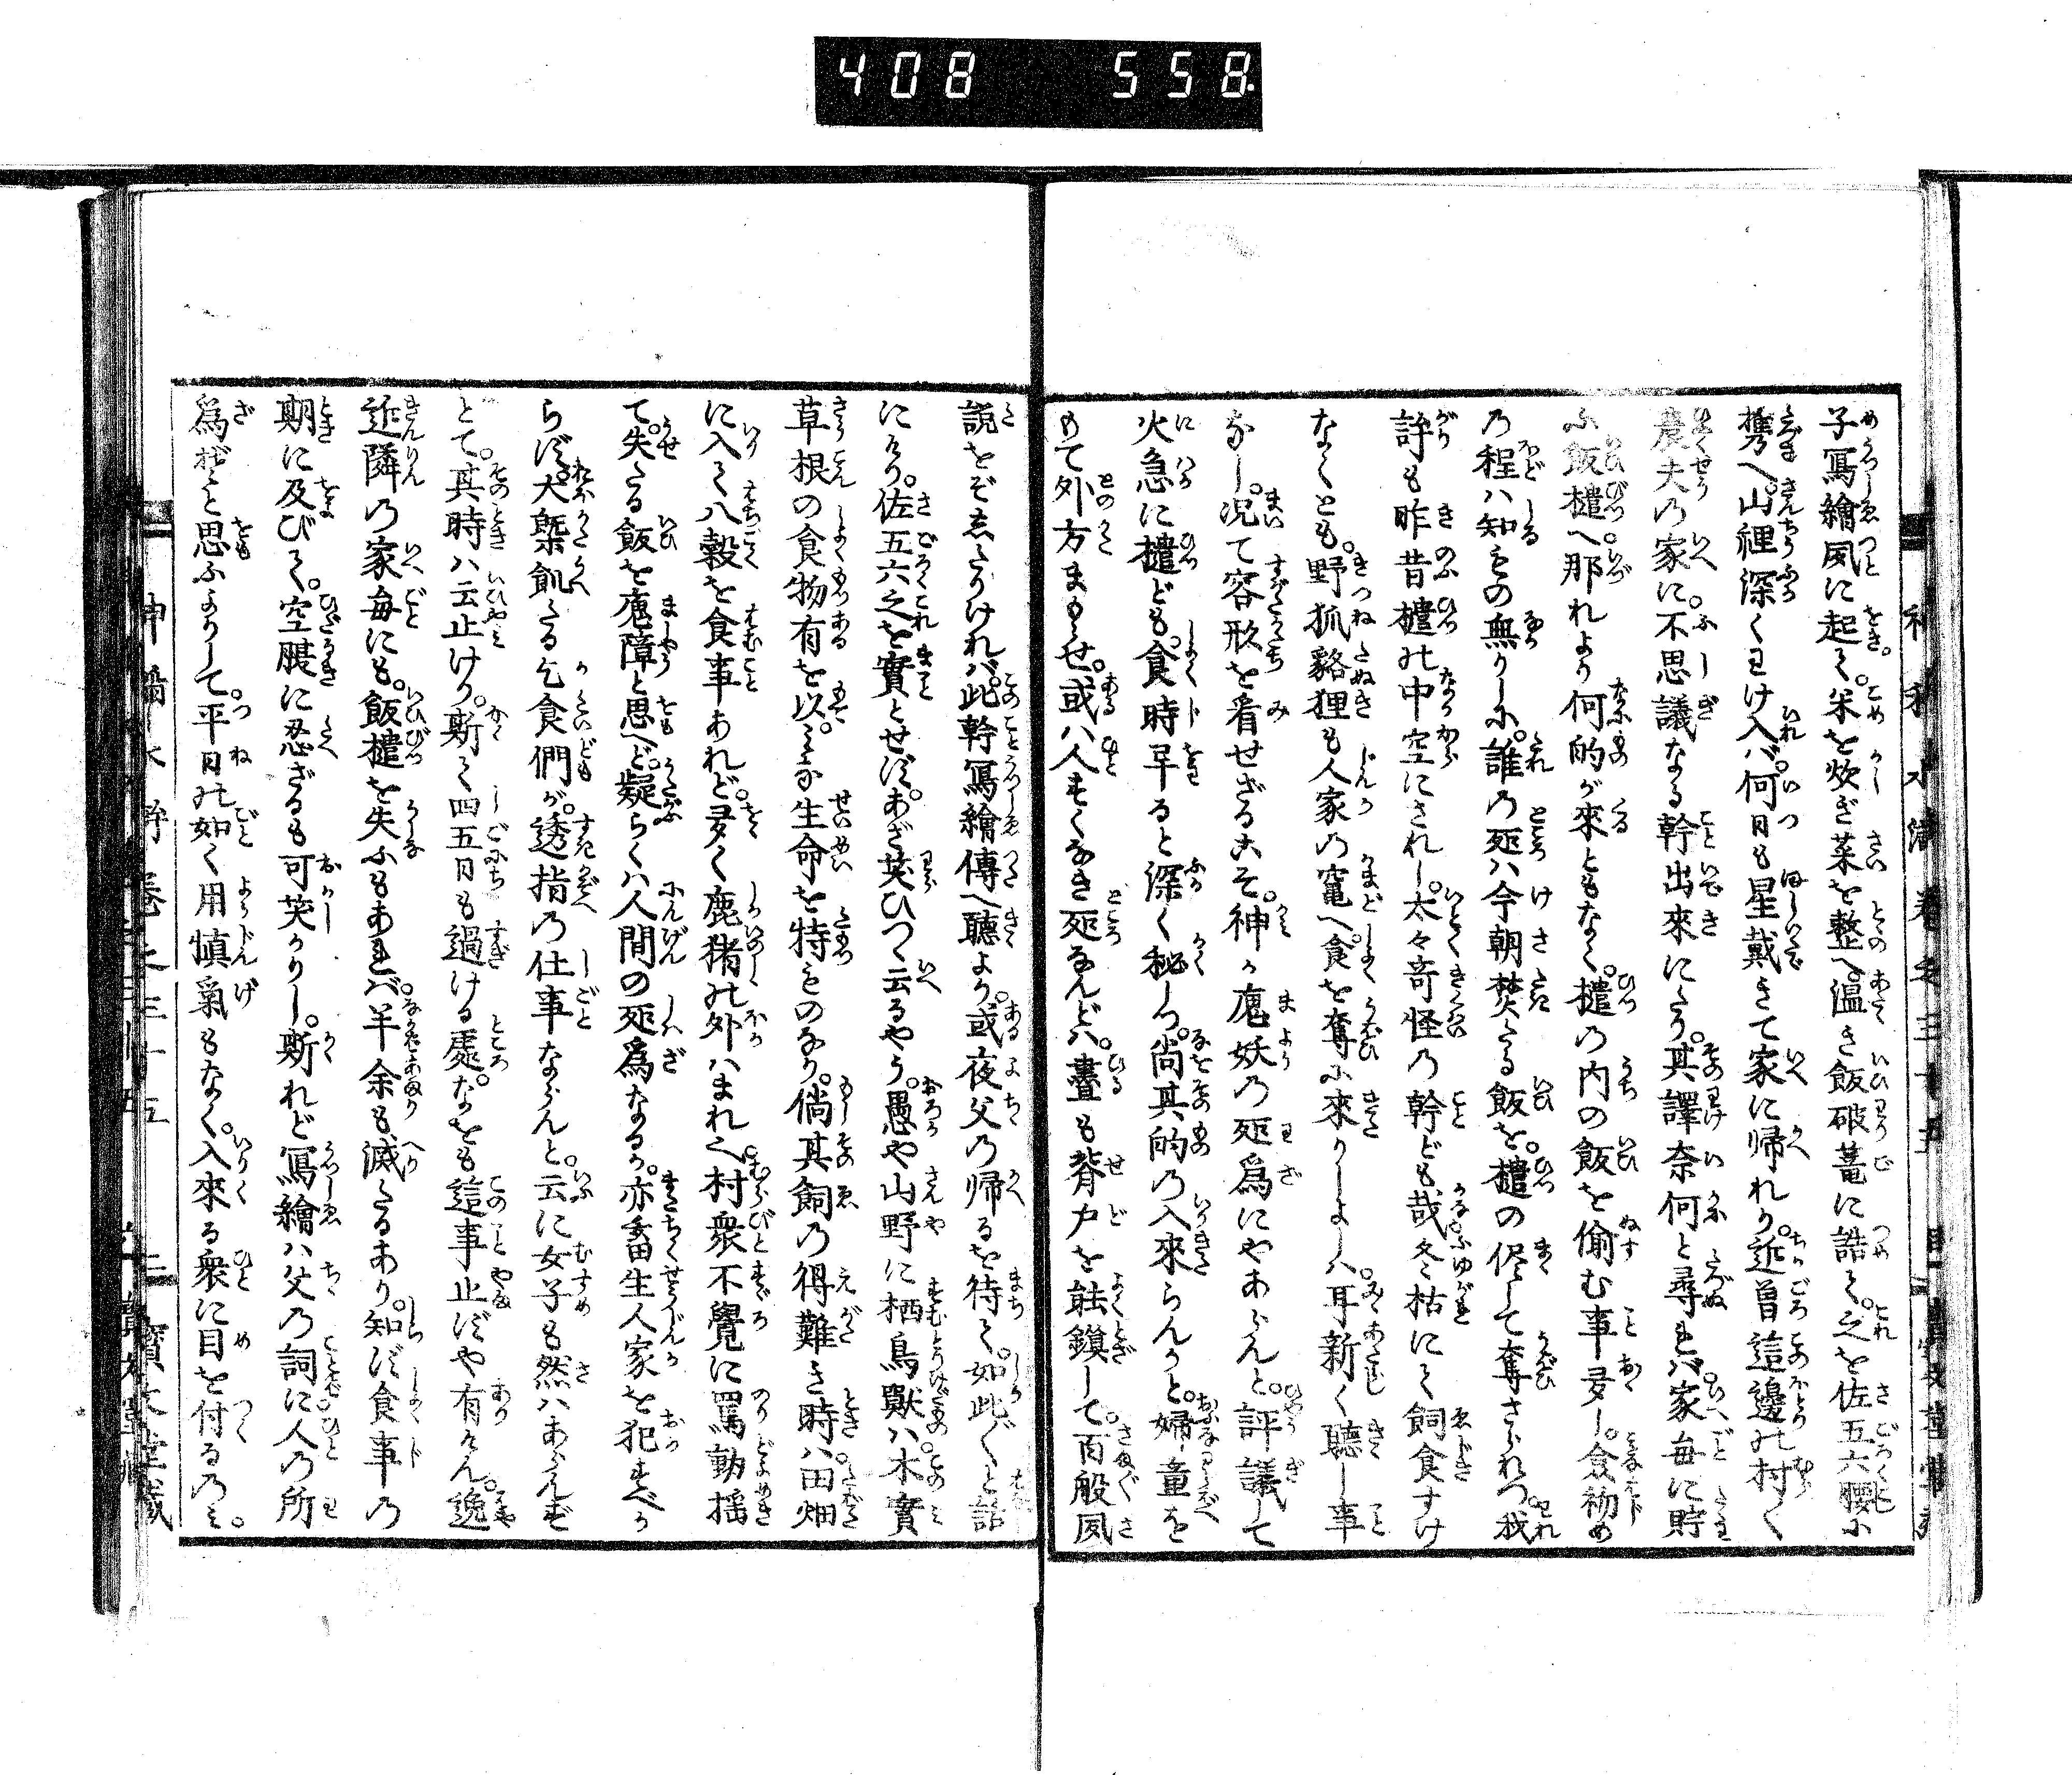 408 558
子寫繪夙に起て。米を炊ぎ菜を整へ温き飯破蓋に詰て。之を佐五六腰に
携へ。山裡深くわけ入バ。何日も星戴きて家に帰れり。近曽這邊の村く
農夫の家に。不思議なる幹出來にたり。其譯奈何と尋れバ。家毎に貯
ふ飯櫃へ。那れより何的が來ともなく。櫃の内の飯を偷む事多し。食初め
の程ハ知ものの無りしに。誰の所ハ今朝焚たる飯を。櫃の侭して奪さられつ。我
許も昨昔櫃の中空にされし。太々奇怪の幹ども哉。冬枯にて飼食すけ
なくとも。野狐貉狸も人家の竃へ。食を奪に來りしよしハ。耳新く聽し事
なし。况て容形を看せざるこそ。神か魔妖の所爲にやあらんと。評議して
火急に櫃ども。食時早ると深く秘しつ。尚其的の入來らんかと。婦童を
もて外方まもらせ。或ハ人すくなき所なんどハ。晝も脊戸を能鎖して。百般夙
説をぞゑたりけれバ。此幹寫繪傳へ聽より。或夜父の帰るを待て。如此〲と話
にけり。佐五六之を實とせず。あざ笑ひつゝ云るやう。愚や山野に栖鳥獸ハ。木實
草根の食物有を以。みな生命を特ものなり。倘其飼の得難き時ハ。田畑
に入て八穀を食事あれど。多く鹿猪の外ハまれ也。村衆不覺に罵動揺
て。失たる飯を魔障と思へど。疑らくハ人間の所爲なるか。亦畜生人家を犯すべか
らず。大槩飢たる乞食們が。透指の仕事ならんと。云に女子も然ハあらんず
とて。其時ハ云止けり。斯て四五日も過ける處。なをも這事止ずや有けん。逸
近隣の家毎にも。飯櫃を失ふもあれバ。半余も滅たるあり。知ず食事の
期に及びて。空腹に忍ざるも可笑かりし。斯れど寫繪ハ父の詞に人の所
爲ざと思ふよりして。平日の如く用愼氣もなく。入來る衆に目を付るのミ。